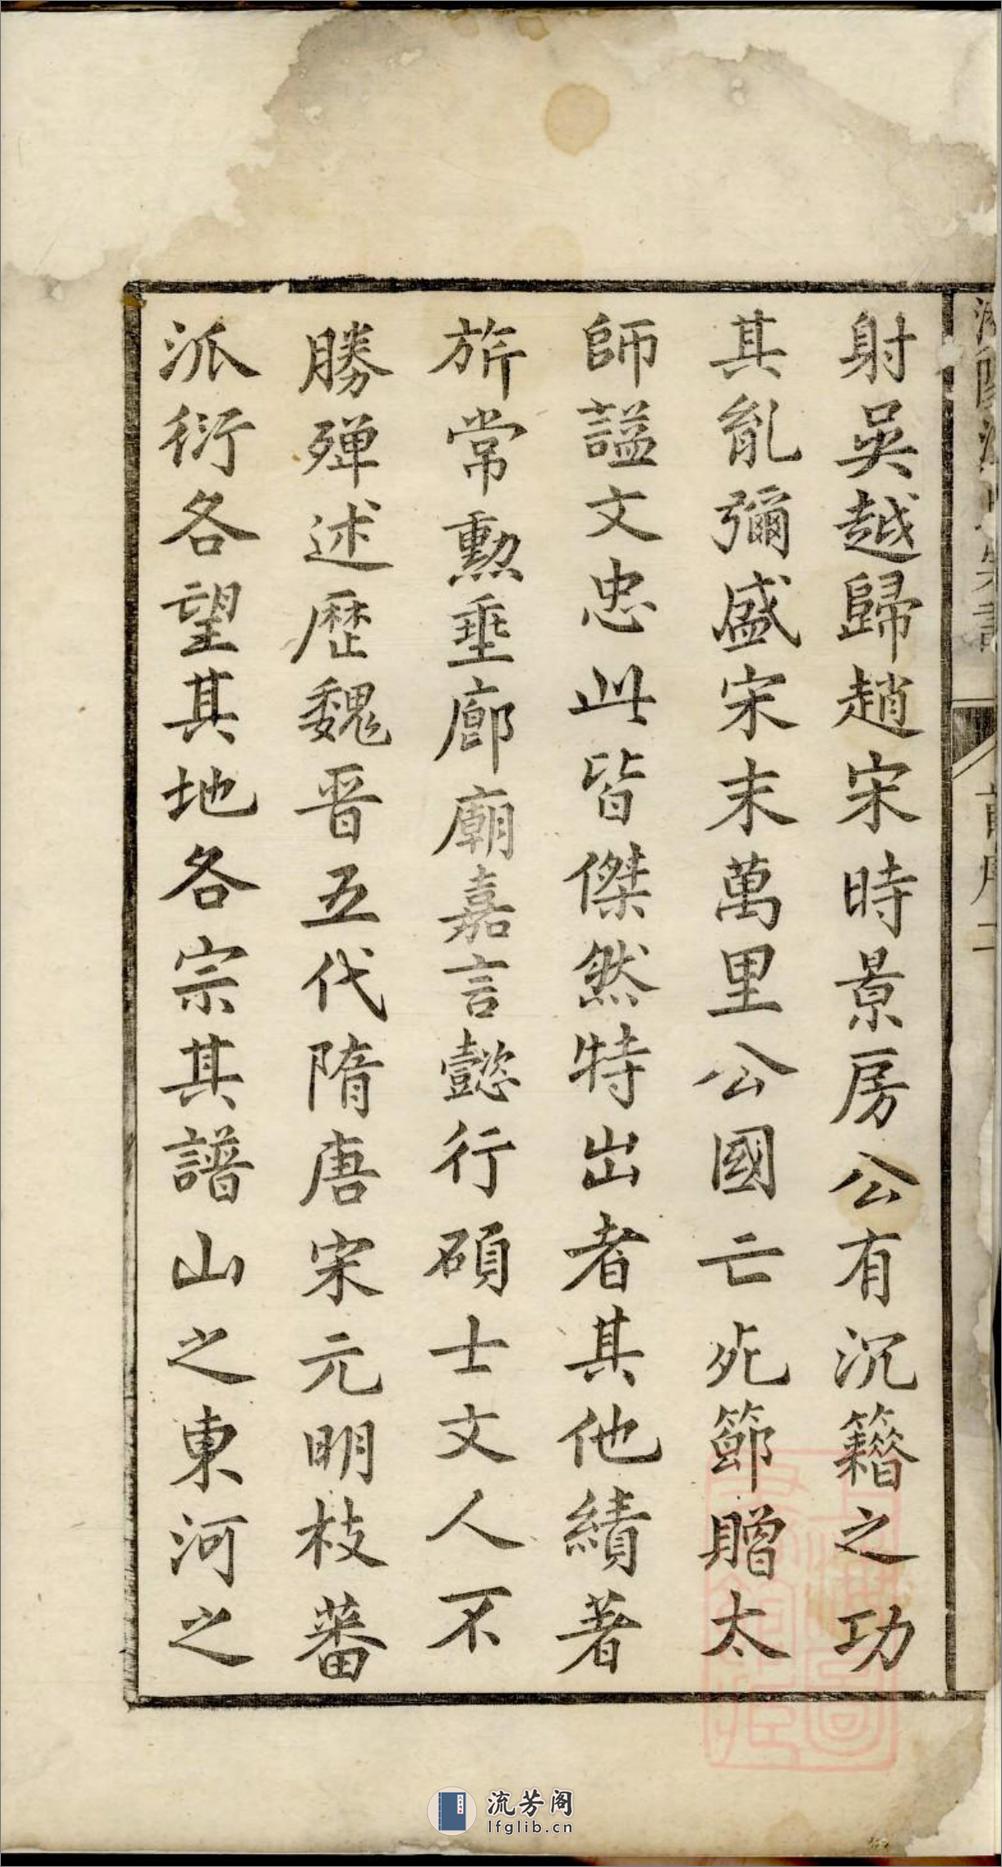 射吳越歸趙宋時景房公有沉籍之功
其胤彌盛宋末萬里公國亡死節贈太
師謚文忠此皆傑然特出者其他績著
旂常勲垂廊廟嘉言懿行碩士文人不
勝殫述歷魏晋五代隋唐宋元明枝蕃
派衍各望其地各宗其譜山之東河之
流芳阁
lfglib.cn